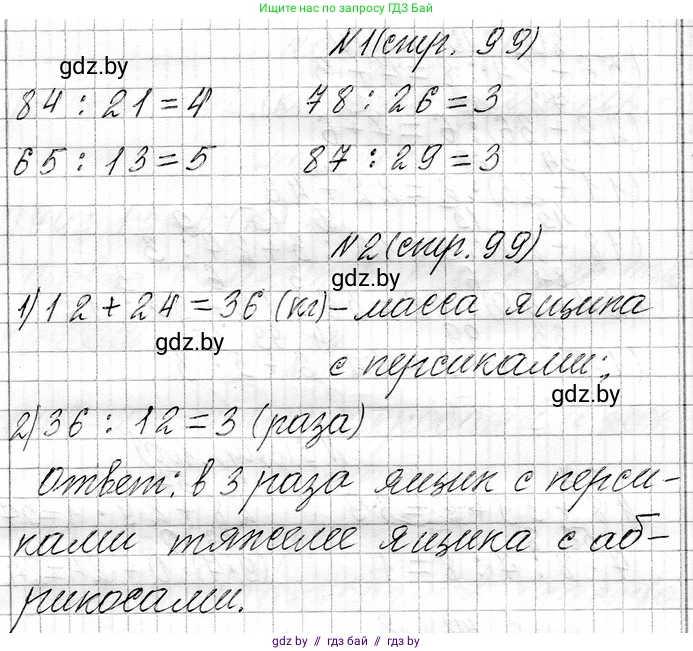 Ищите нас по запросу ГДЗ Бай
N1(стр. 99)
gdz.by
84 : 21 = 4 78 : 26 = 3
65 : 13 = 5 87 : 29 = 3
N2(стр. 99)
gdz.by
1) 12 + 24 = 36 (кг) - масса ящика
gdz.by
с персиками;
gdz.by
2) 36 : 12 = 3 (раза)
Ответ: в 3 раза ящик с перси-
ками тяжелее ящика с аб-
рикосами.
gdz.by // гдз бай // gdz.by